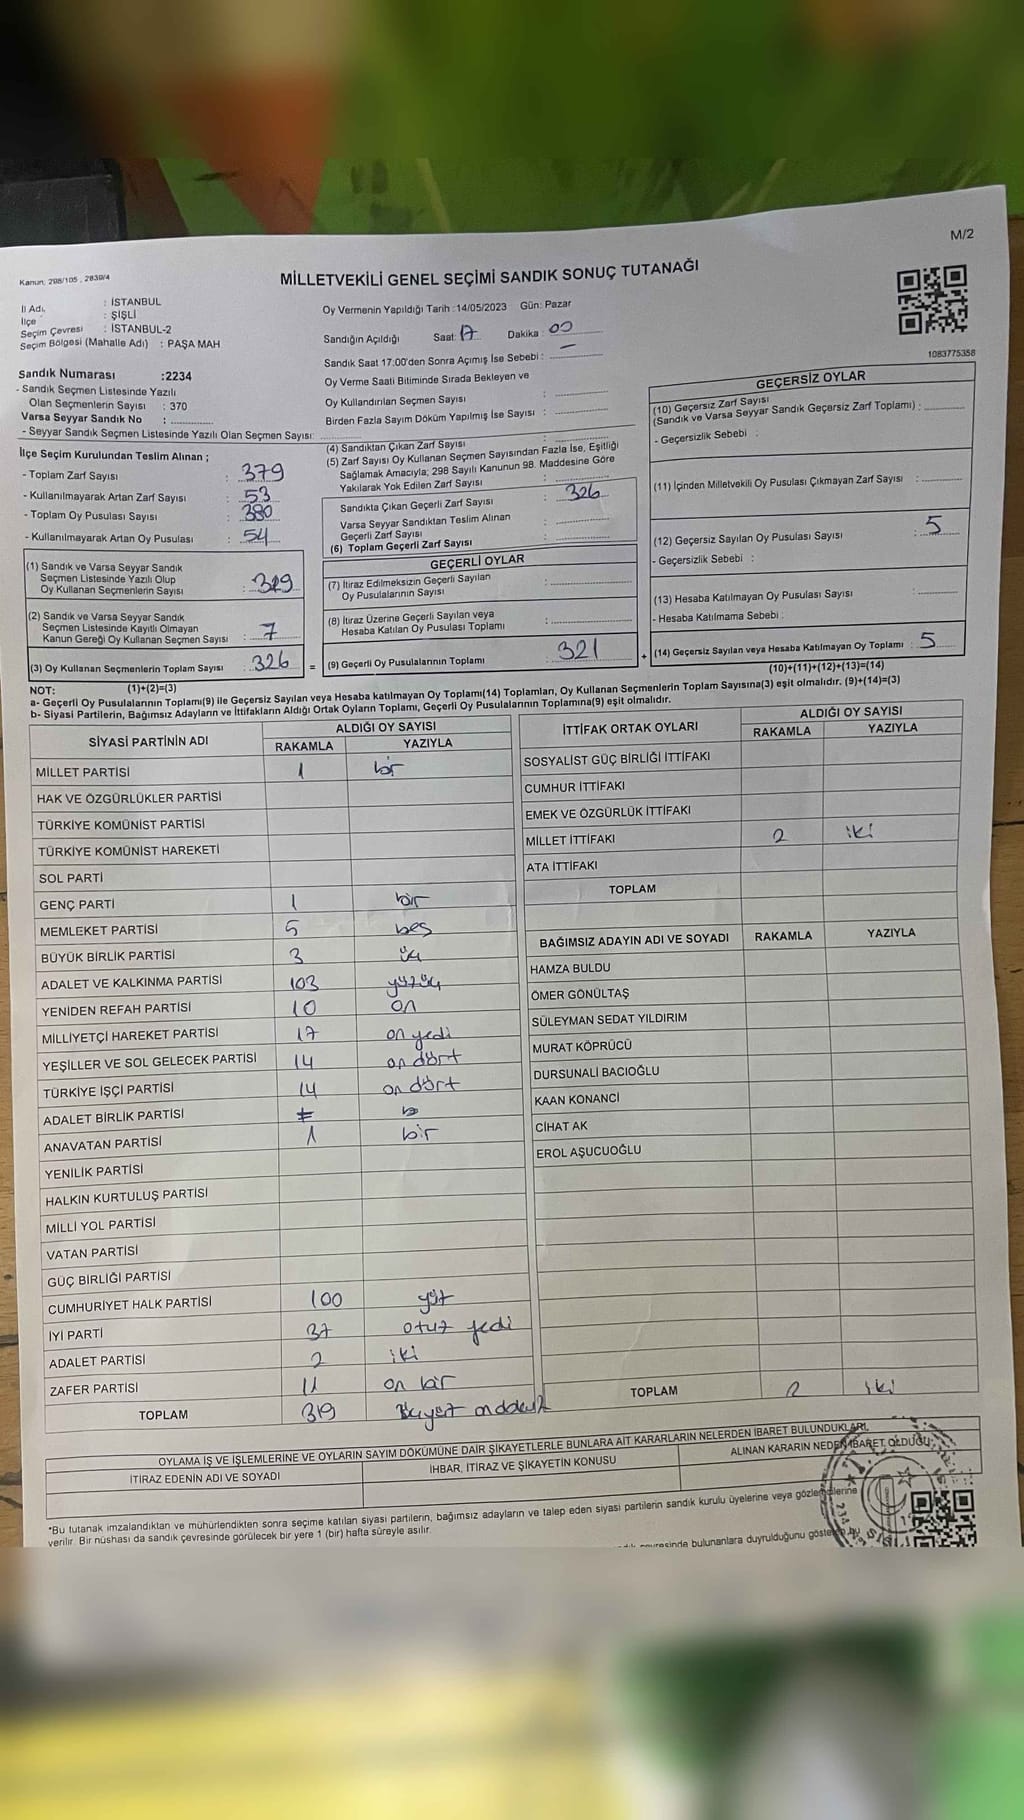 M/2
Kanun: 298/105 , 2839/4
MİLLETVEKİLİ GENEL SEÇİMİ SANDIK SONUÇ TUTANAĞI
1083775358
İl Adı, : İSTANBUL
İlçe : ŞİŞLİ
Seçim Çevresi : İSTANBUL-2
Seçim Bölgesi (Mahalle Adı) : PAŞA MAH
Sandık Numarası :2234
- Sandık Seçmen Listesinde Yazılı
Olan Seçmenlerin Sayısı : 370
Varsa Seyyar Sandık No :
- Seyyar Sandık Seçmen Listesinde Yazılı Olan Seçmen Sayısı:
İlçe Seçim Kurulundan Teslim Alınan ;
- Toplam Zarf Sayısı : 379
- Kullanılmayarak Artan Zarf Sayısı : 53
- Toplam Oy Pusulası Sayısı : 380
- Kullanılmayarak Artan Oy Pusulası : 54
(1) Sandık ve Varsa Seyyar Sandık
Seçmen Listesinde Yazılı Olup
Oy Kullanan Seçmenlerin Sayısı : 319
(2) Sandık ve Varsa Seyyar Sandık
Seçmen Listesinde Kayıtlı Olmayan
Kanun Gereği Oy Kullanan Seçmen Sayısı : 7
(3) Oy Kullanan Seçmenlerin Toplam Sayısı : 326
Oy Vermenin Yapıldığı Tarih :14/05/2023 Gün: Pazar
Sandığın Açıldığı Saat: 17 Dakika : 00
Sandık Saat 17:00'den Sonra Açımış İse Sebebi : —
Oy Verme Saati Bitiminde Sırada Bekleyen ve
Oy Kullandırılan Seçmen Sayısı :
Birden Fazla Sayım Döküm Yapılmış İse Sayısı :
(4) Sandıktan Çıkan Zarf Sayısı :
(5) Zarf Sayısı Oy Kullanan Seçmen Sayısından Fazla İse, Eşitliği
Sağlamak Amacıyla; 298 Sayılı Kanunun 98. Maddesine Göre
Yakılarak Yok Edilen Zarf Sayısı :
Sandıkta Çıkan Geçerli Zarf Sayısı : 326
Varsa Seyyar Sandıktan Teslim Alınan
Geçerli Zarf Sayısı :
(6) Toplam Geçerli Zarf Sayısı :
GEÇERLİ OYLAR
(7) İtiraz Edilmeksizin Geçerli Sayılan
Oy Pusulalarının Sayısı :
(8) İtiraz Üzerine Geçerli Sayılan veya
Hesaba Katılan Oy Pusulası Toplamı :
= (9) Geçerli Oy Pusulalarının Toplamı : 321
GEÇERSİZ OYLAR
(10) Geçersiz Zarf Sayısı
(Sandık ve Varsa Seyyar Sandık Geçersiz Zarf Toplamı) :
- Geçersizlik Sebebi :
(11) İçinden Milletvekili Oy Pusulası Çıkmayan Zarf Sayısı :
(12) Geçersiz Sayılan Oy Pusulası Sayısı : 5
- Geçersizlik Sebebi :
(13) Hesaba Katılmayan Oy Pusulası Sayısı :
- Hesaba Katılmama Sebebi :
+ (14) Geçersiz Sayılan veya Hesaba Katılmayan Oy Toplamı : 5
NOT: (1)+(2)=(3) (10)+(11)+(12)+(13)=(14)
a- Geçerli Oy Pusulalarının Toplamı(9) ile Geçersiz Sayılan veya Hesaba katılmayan Oy Toplamı(14) Toplamları, Oy Kullanan Seçmenlerin Toplam Sayısına(3) eşit olmalıdır. (9)+(14)=(3)
b- Siyasi Partilerin, Bağımsız Adayların ve İttifakların Aldığı Ortak Oyların Toplamı, Geçerli Oy Pusulalarının Toplamına(9) eşit olmalıdır.
SİYASİ PARTİNİN ADI ALDIĞI OY SAYISI
RAKAMLA YAZIYLA
MİLLET PARTİSİ 1 bir
HAK VE ÖZGÜRLÜKLER PARTİSİ
TÜRKİYE KOMÜNİST PARTİSİ
TÜRKİYE KOMÜNİST HAREKETİ
SOL PARTİ
GENÇ PARTİ 1 bir
MEMLEKET PARTİSİ 5 beş
BÜYÜK BİRLİK PARTİSİ 3 üç
ADALET VE KALKINMA PARTİSİ 103 yüzüç
YENİDEN REFAH PARTİSİ 10 on
MİLLİYETÇİ HAREKET PARTİSİ 17 on yedi
YEŞİLLER VE SOL GELECEK PARTİSİ 14 on dört
TÜRKİYE İŞÇİ PARTİSİ 14 on dört
ADALET BİRLİK PARTİSİ
ANAVATAN PARTİSİ 1 bir
YENİLİK PARTİSİ
HALKIN KURTULUŞ PARTİSİ
MİLLİ YOL PARTİSİ
VATAN PARTİSİ
GÜÇ BİRLİĞİ PARTİSİ
CUMHURİYET HALK PARTİSİ 100 yüz
İYİ PARTİ 37 otuz yedi
ADALET PARTİSİ 2 iki
ZAFER PARTİSİ 11 on bir
TOPLAM 319
İTTİFAK ORTAK OYLARI ALDIĞI OY SAYISI
RAKAMLA YAZIYLA
SOSYALİST GÜÇ BİRLİĞİ İTTİFAKI
CUMHUR İTTİFAKI
EMEK VE ÖZGÜRLÜK İTTİFAKI
MİLLET İTTİFAKI 2 iki
ATA İTTİFAKI
TOPLAM
BAĞIMSIZ ADAYIN ADI VE SOYADI RAKAMLA YAZIYLA
HAMZA BULDU
ÖMER GÖNÜLTAŞ
SÜLEYMAN SEDAT YILDIRIM
MURAT KÖPRÜCÜ
DURSUNALİ BACIOĞLU
KAAN KONANCİ
CİHAT AK
EROL AŞUCUOĞLU
TOPLAM 2 iki
OYLAMA İŞ VE İŞLEMLERİNE VE OYLARIN SAYIM DÖKÜMÜNE DAİR ŞİKAYETLERLE BUNLARA AİT KARARLARIN NELERDEN İBARET BULUNDUKLARI,
İTİRAZ EDENİN ADI VE SOYADI İHBAR, İTİRAZ VE ŞİKAYETİN KONUSU ALINAN KARARIN NEDEN İBARET OLDUĞU
*Bu tutanak imzalandıktan ve mühürlendikten sonra seçime katılan siyasi partilerin, bağımsız adayların ve talep eden siyasi partilerin sandık kurulu üyelerine veya gözlemcilerine
verilir. Bir nüshası da sandık çevresinde görülecek bir yere 1 (bir) hafta süreyle asılır.
bulunanlara duyrulduğunu